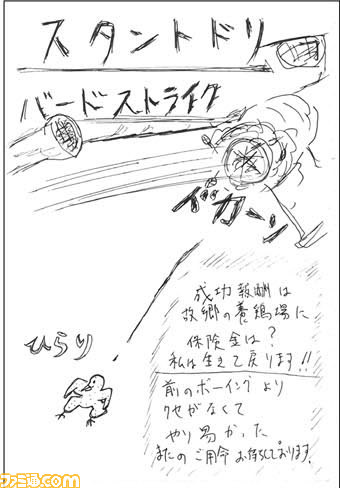 スタントドリ
バードストライク
ドカーン
ひらり
成功報酬は
故郷の養鶏場に
保険金は？
私は生きて戻ります!!
前のボーイングより
クセがなくて
やり易かった。
またのご用命お待ちしております。
ファミ通.com